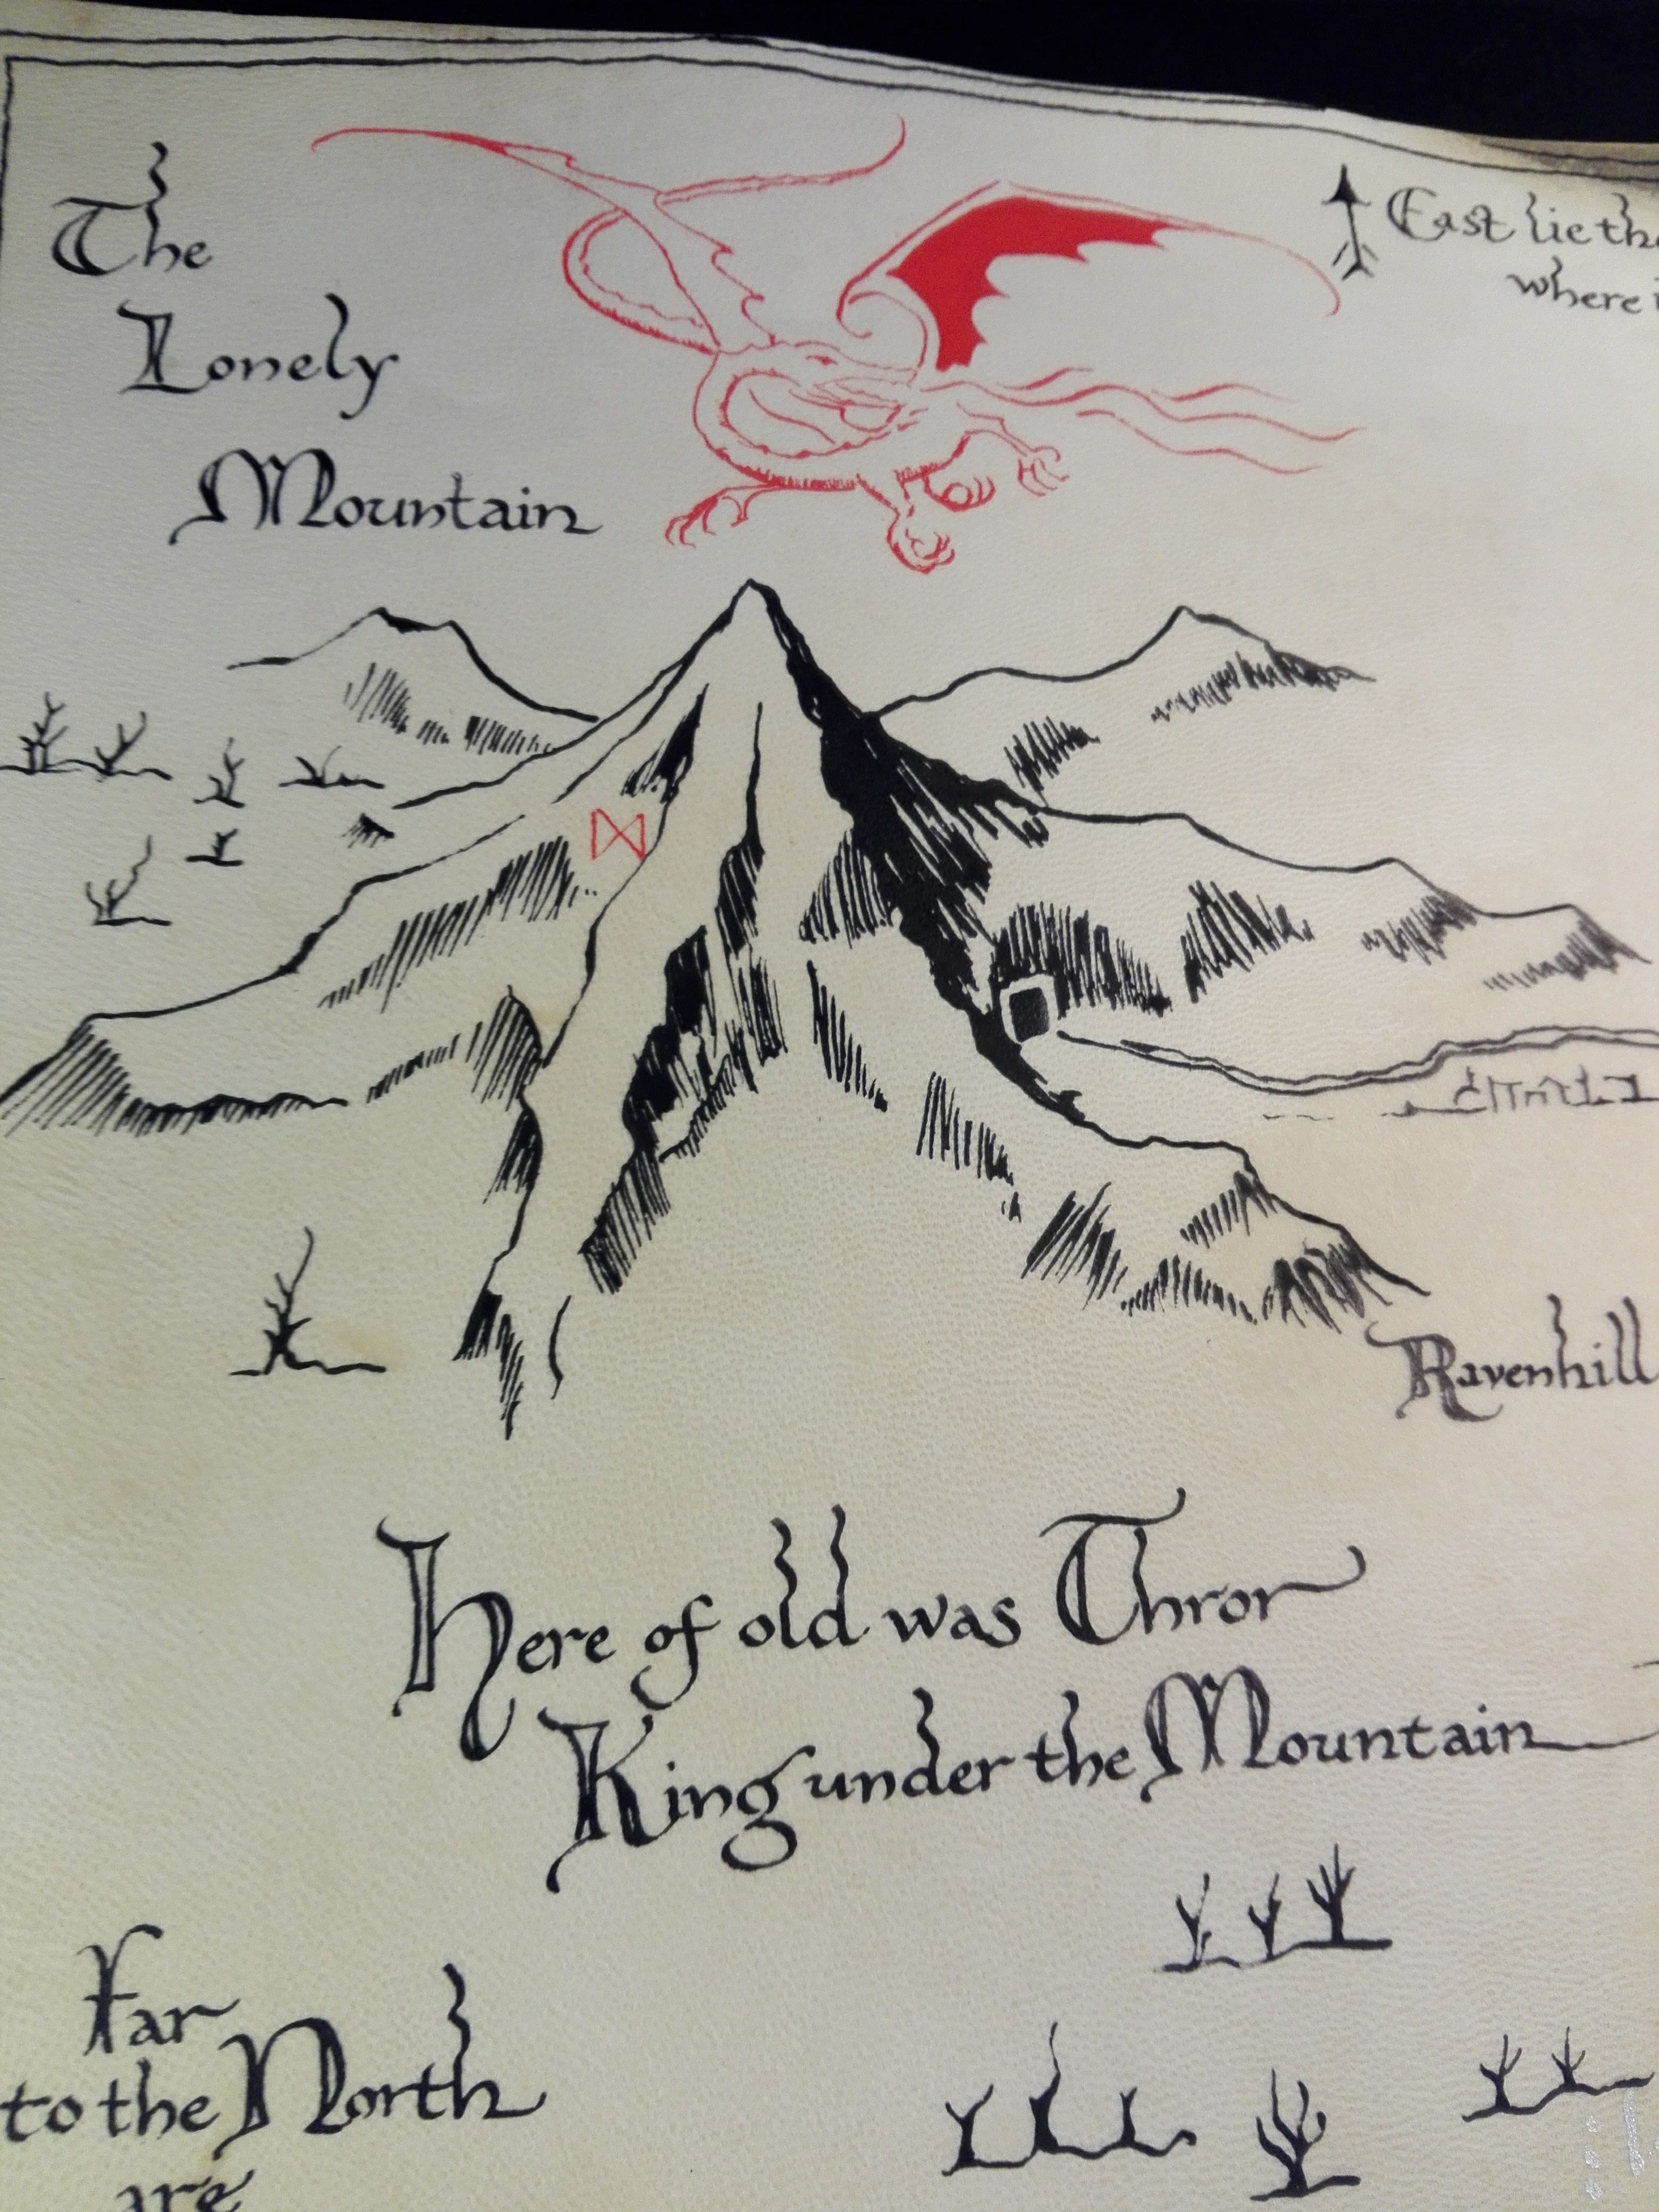 The
Lonely
Mountain
East lie
where
ᛞ
Ravenhill
Here of old was Thror
King under the Mountain
Far
to the North
are